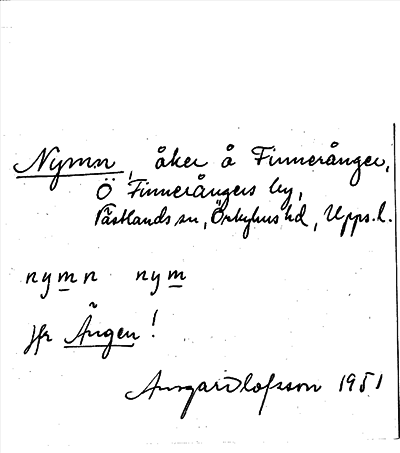 Nymn, åker å Finnerånger,
Ö Finnerångers by,
Västlands sn, Örbyhus hd, Upps. l.
nymn nym
jfr Ängen!
Ansgar Olofsson 1951